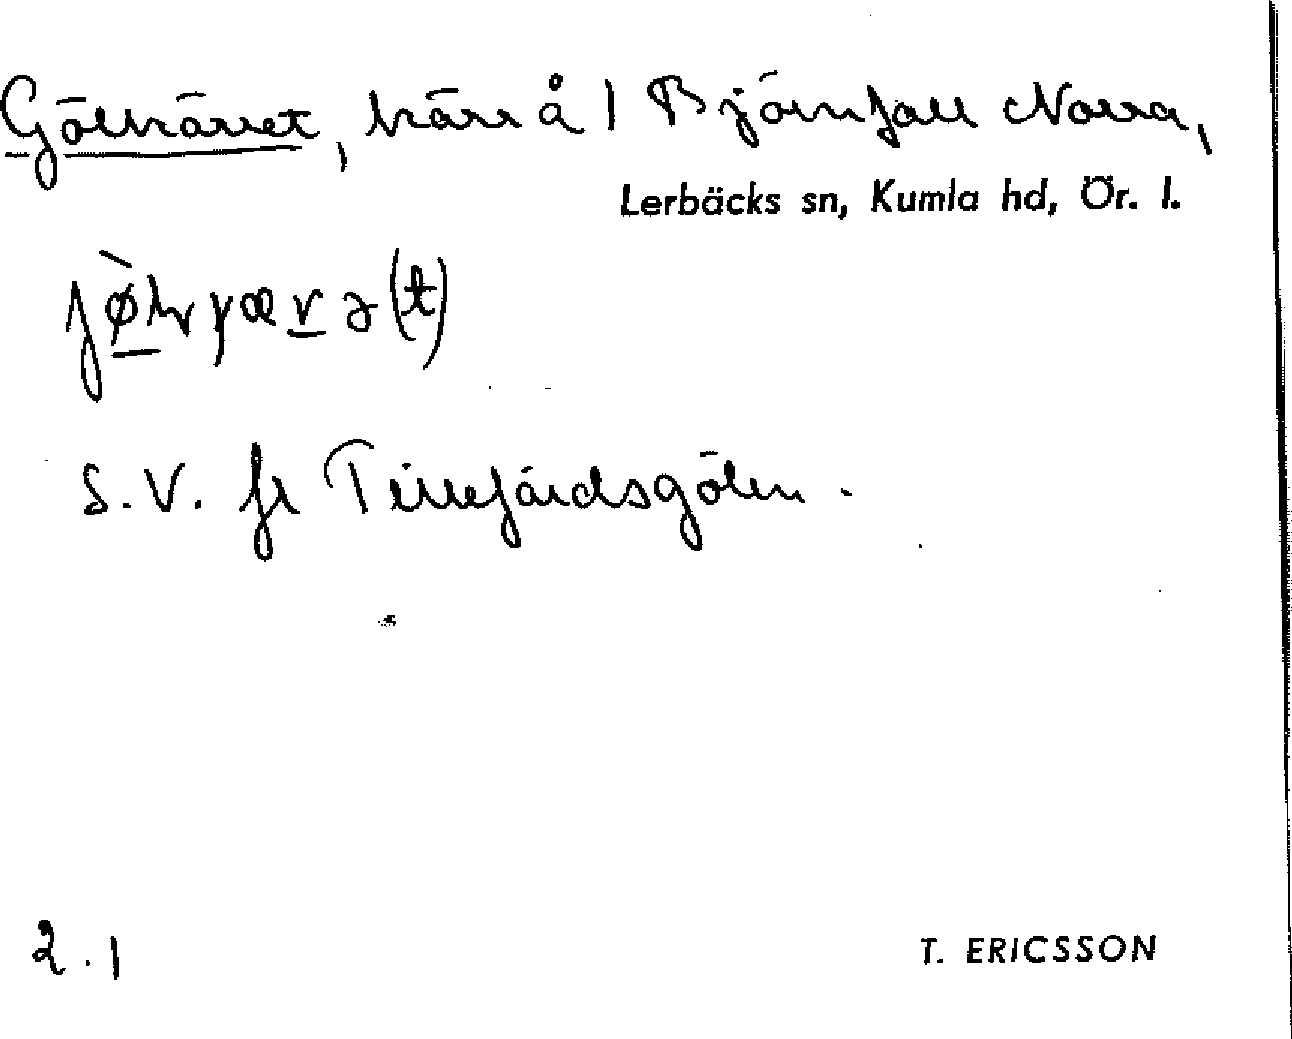 Gölkärret, kärr å 1 Björnfall Norra,
Lerbäcks sn, Kumla hd, Ör. l.
S.V. fr Tillefärdsgölen.
2.1
T. ERICSSON